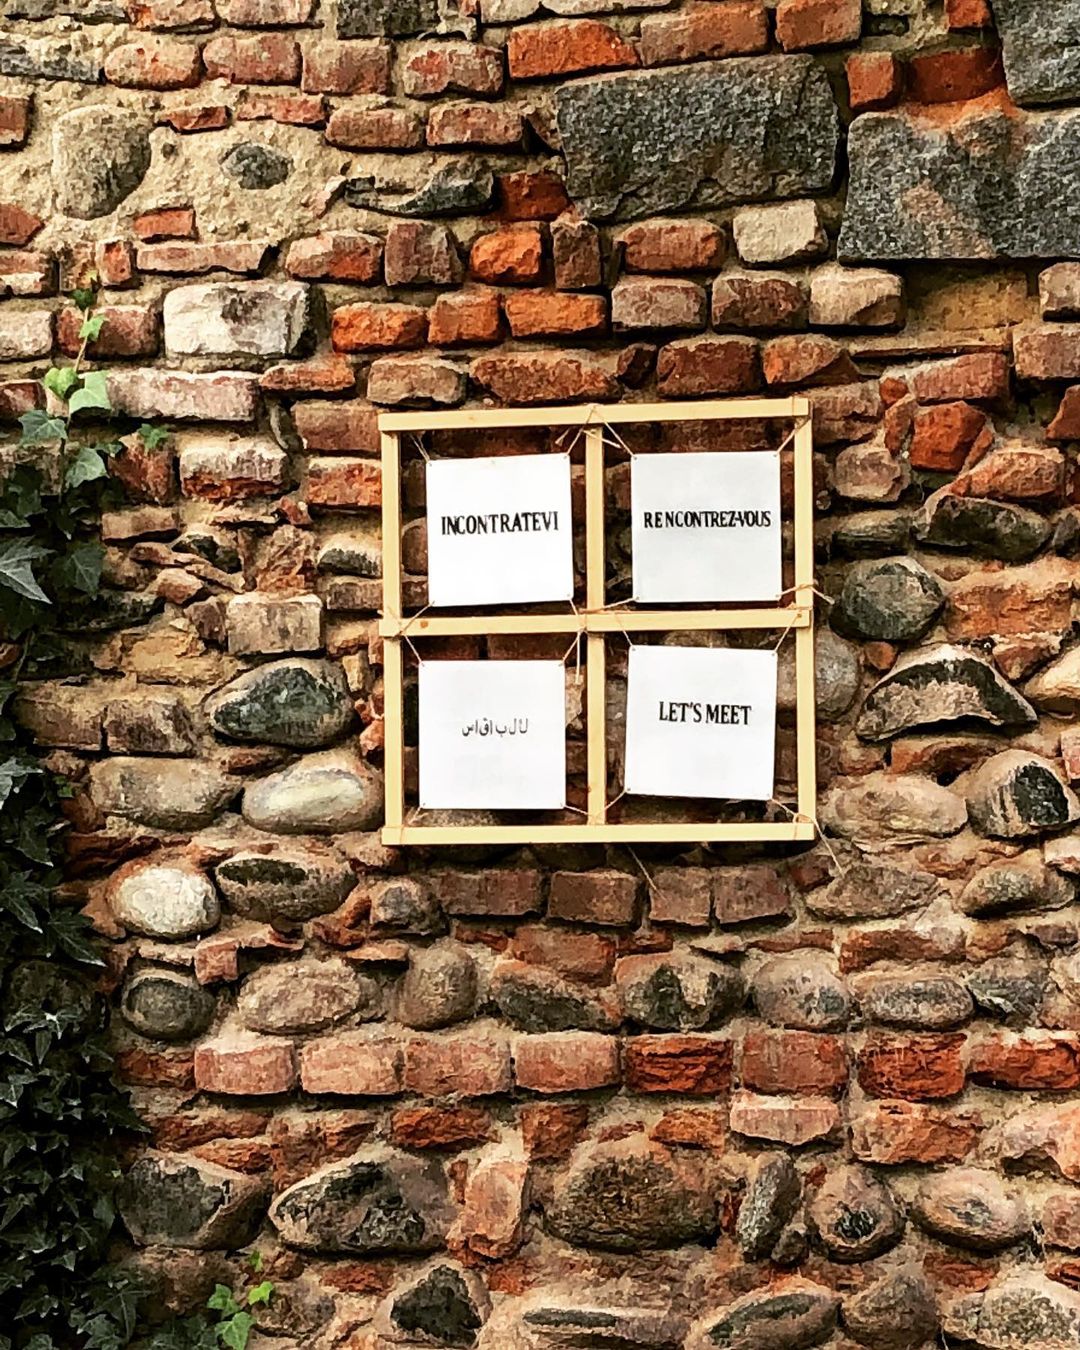 INCONTRATEVI
RENCONTREZ-VOUS
LET'S MEET